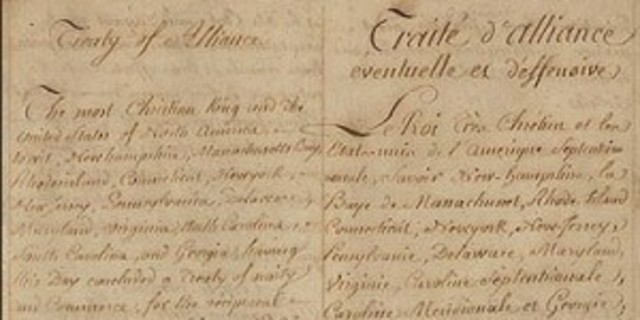 Treaty of Alliance
The most Christian King and the
United States of North America,
to wit, Newhampshire, Massachusetts Bay,
Rhodeisland, Connecticut, Newyork,
New Jersey, Pennsylvania, Delaware,
Maryland, Virginia, North Carolina,
South Carolina, and Georgia, having
this Day concluded a Treaty of amity
and Commerce, for the reciprocal
Traité d'alliance
eventuelle et deffensive
Le Roi très Chretien et les
Etats-unis de l'Amerique Septentrio-
nale, savoir New-hampshire, la
Baye de Massachuset, Rhode Island
Connecticut, Newyork, New-Jersey,
Pensylvanie, Delaware, Maryland,
Virginie, Caroline Septentrionale,
Caroline Meridionale et Georgie,